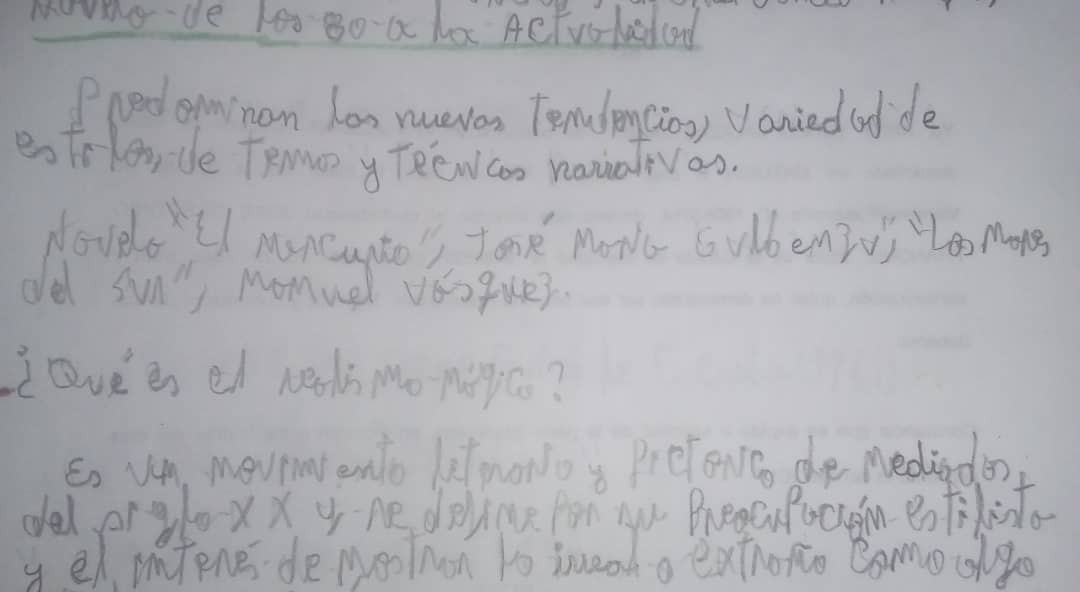 de los 80 a la Actualidad
Predominan las nuevas Tendencias, Variedad de
estilos, de Temas y Técnicas narrativas.
Novela "El Mercurio", José María Guelbenzu, "Los Mares
del Sur", Manuel Vásquez.
¿Qué es el realismo mágico?
Es un movimiento literario y Pictórico de Mediados
del siglo XX y se define por su Preocupación estilista
y el interés de mostrar lo irreal o extraño como algo